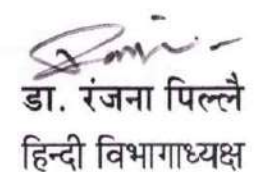 डा. रंजना पिल्लै
हिन्दी विभागाध्यक्ष